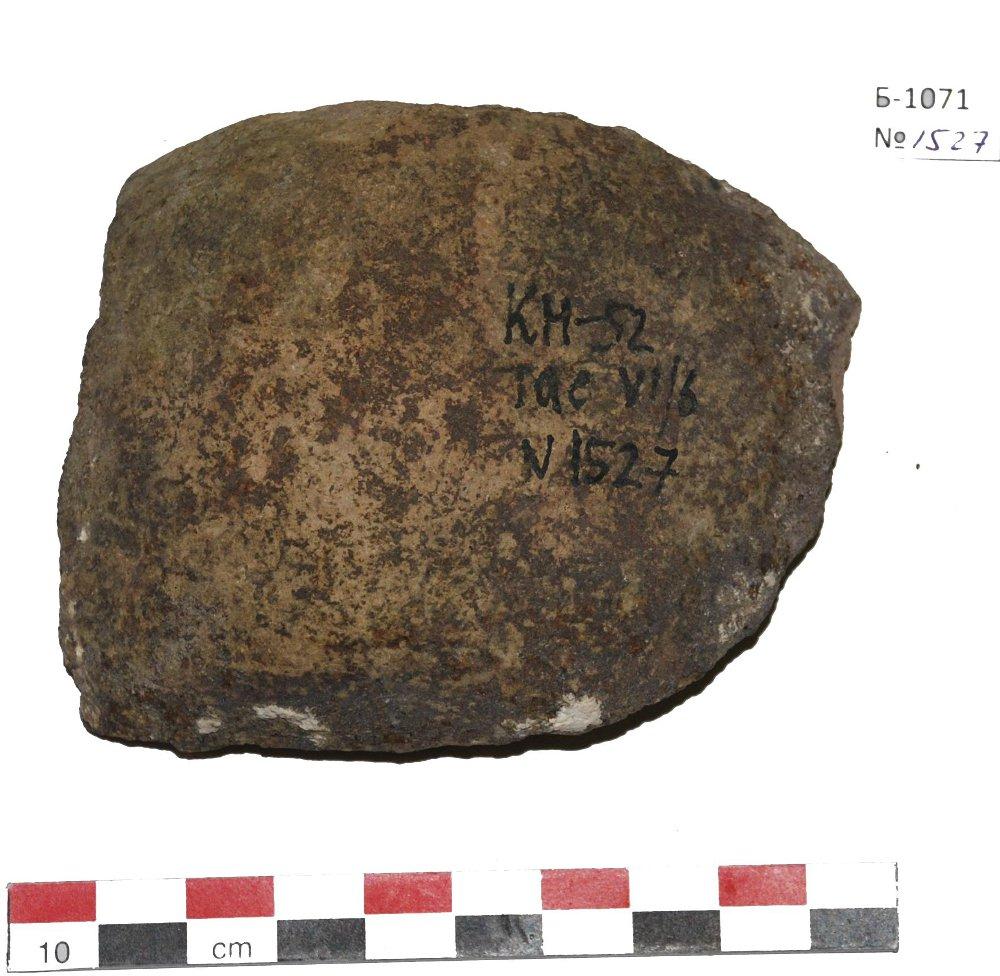 Б-1071
№ 1527
КМ-52
Тае VI/6
N 1527
10 cm